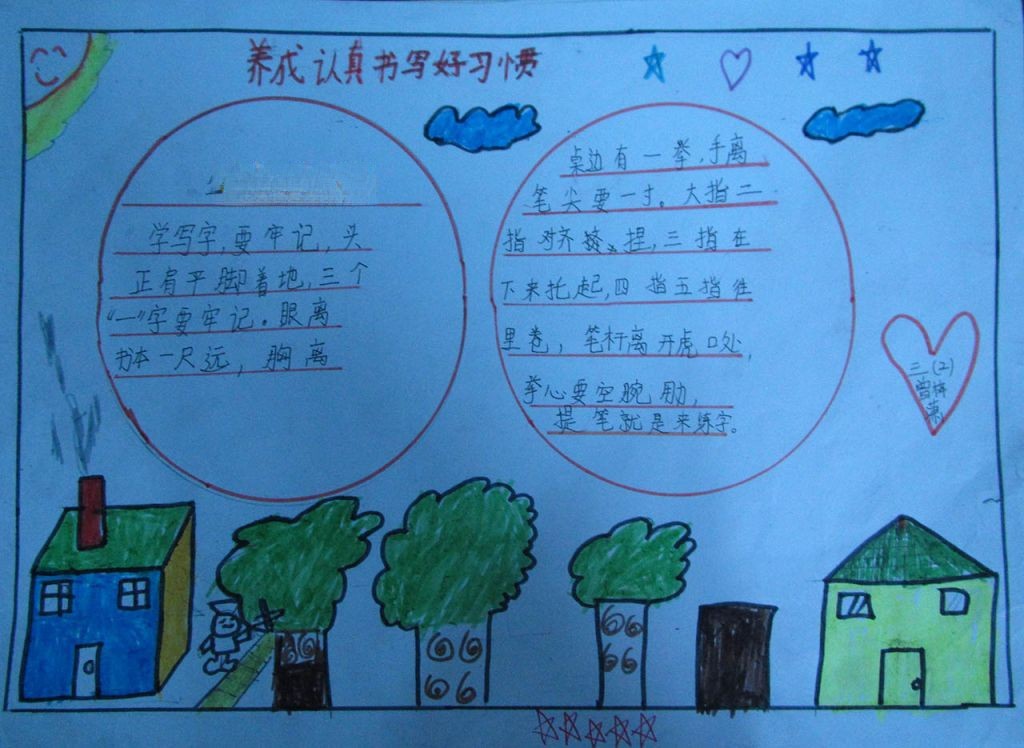 养成认真书写好习惯
学写字,要牢记,头
正肩平脚着地,三个
“一”字要牢记。眼离
书本一尺远,胸离
桌边有一拳,手离
笔尖要一寸。大指二
指对齐捏,三指在
下来托起,四指五指往
里卷,笔杆离开虎口处,
拳心要空腕用力,
提笔就是来练字。
三(2)